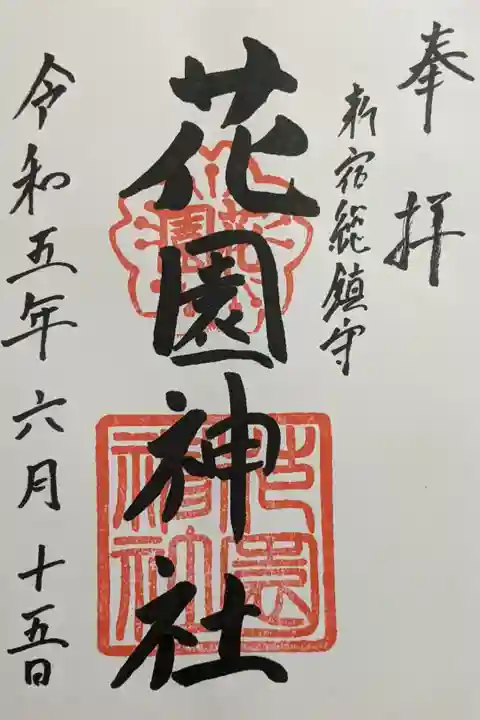 奉拝
新宿総鎮守
花園神社
令和五年六月十五日
花園
花園神社